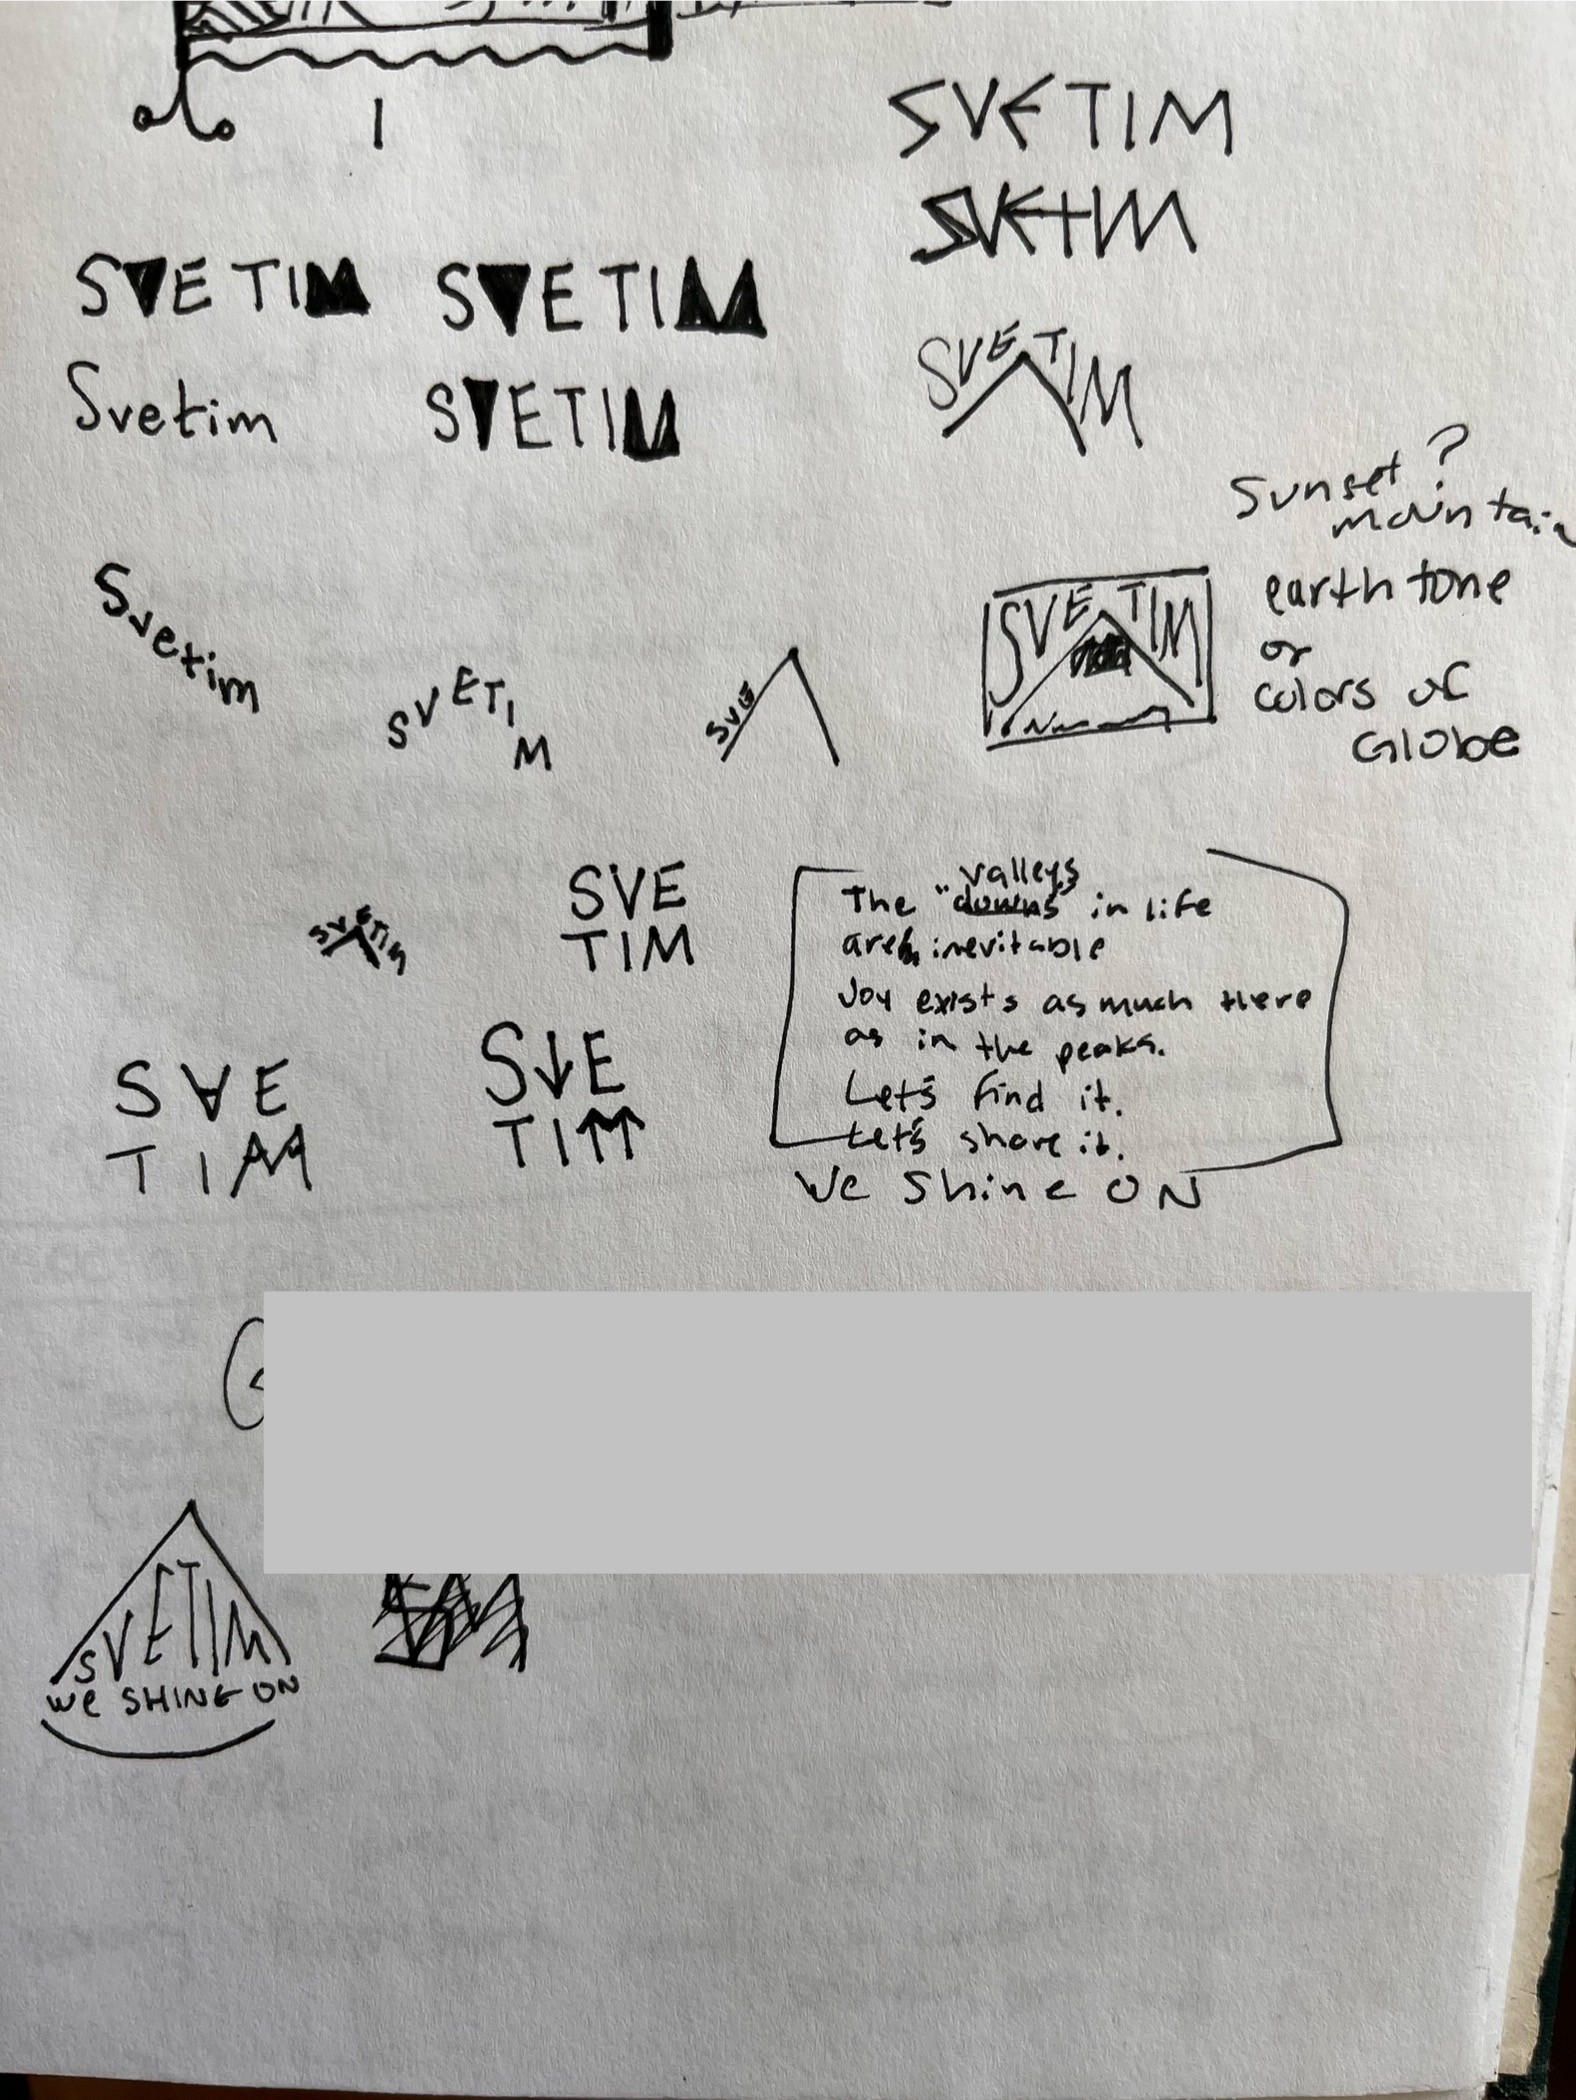 SVETIM
SVETIM
SVETIM SVETIM
Svetim SVETIM
SVETIM
Sunset?
mountain
earth tone
or
colors of
Globe
Svetim
SVETIM
SVE
SVETIM
SVETIM
SVE
TIM
valleys
The "downs" in life
are inevitable
Joy exists as much there
as in the peaks.
Let's find it.
Let's share it.
We Shine ON
SVE
TIM
SVE
TIM
SVETIM
We SHINE ON